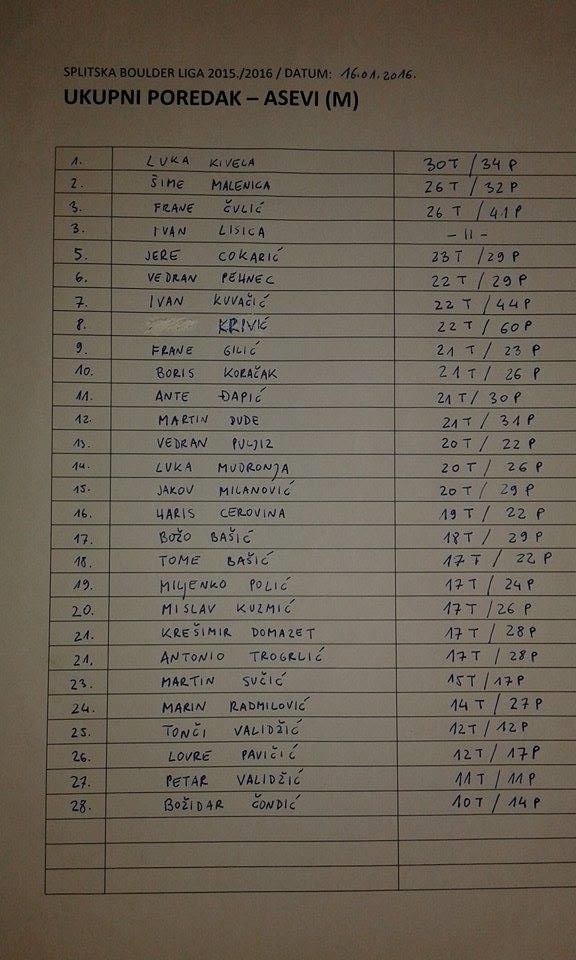 SPLITSKA BOULDER LIGA 2015./2016 / DATUM: 16.01.2016.
UKUPNI POREDAK – ASEVI (M)
1. LUKA KIVELA 30T / 34P
2. ŠIME MALENICA 26T / 32P
3. FRANE ČULIĆ 26T / 41P
3. IVAN LISICA – 11 –
5. JERE COKARIĆ 23T / 29P
6. VEDRAN PEHNEC 22T / 29P
7. IVAN KUVAČIĆ 22T / 44P
8. KRIVIĆ 22T / 60P
9. FRANE GILIĆ 21T / 23P
10. BORIS KORAČAK 21T / 26P
11. ANTE ĐAPIĆ 21T / 30P
12. MARTIN DUDE 21T / 31P
13. VEDRAN PULJIZ 20T / 22P
14. LUKA MUDRONJA 20T / 26P
15. JAKOV MILANOVIĆ 20T / 29P
16. HARIS CEROVINA 19T / 22P
17. BOŽO BAŠIĆ 18T / 29P
18. TOME BAŠIĆ 17T / 22P
19. MILJENKO POLIĆ 17T / 24P
20. MISLAV KUZMIĆ 17T / 26P
21. KREŠIMIR DOMAZET 17T / 28P
21. ANTONIO TROGRLIĆ 17T / 28P
23. MARTIN SUČIĆ 15T / 17P
24. MARIN RADMILOVIĆ 14T / 27P
25. TONČI VALIDŽIĆ 12T / 12P
26. LOVRE PAVIČIĆ 12T / 17P
27. PETAR VALIDŽIĆ 11T / 11P
28. BOŽIDAR ČONDIĆ 10T / 14P